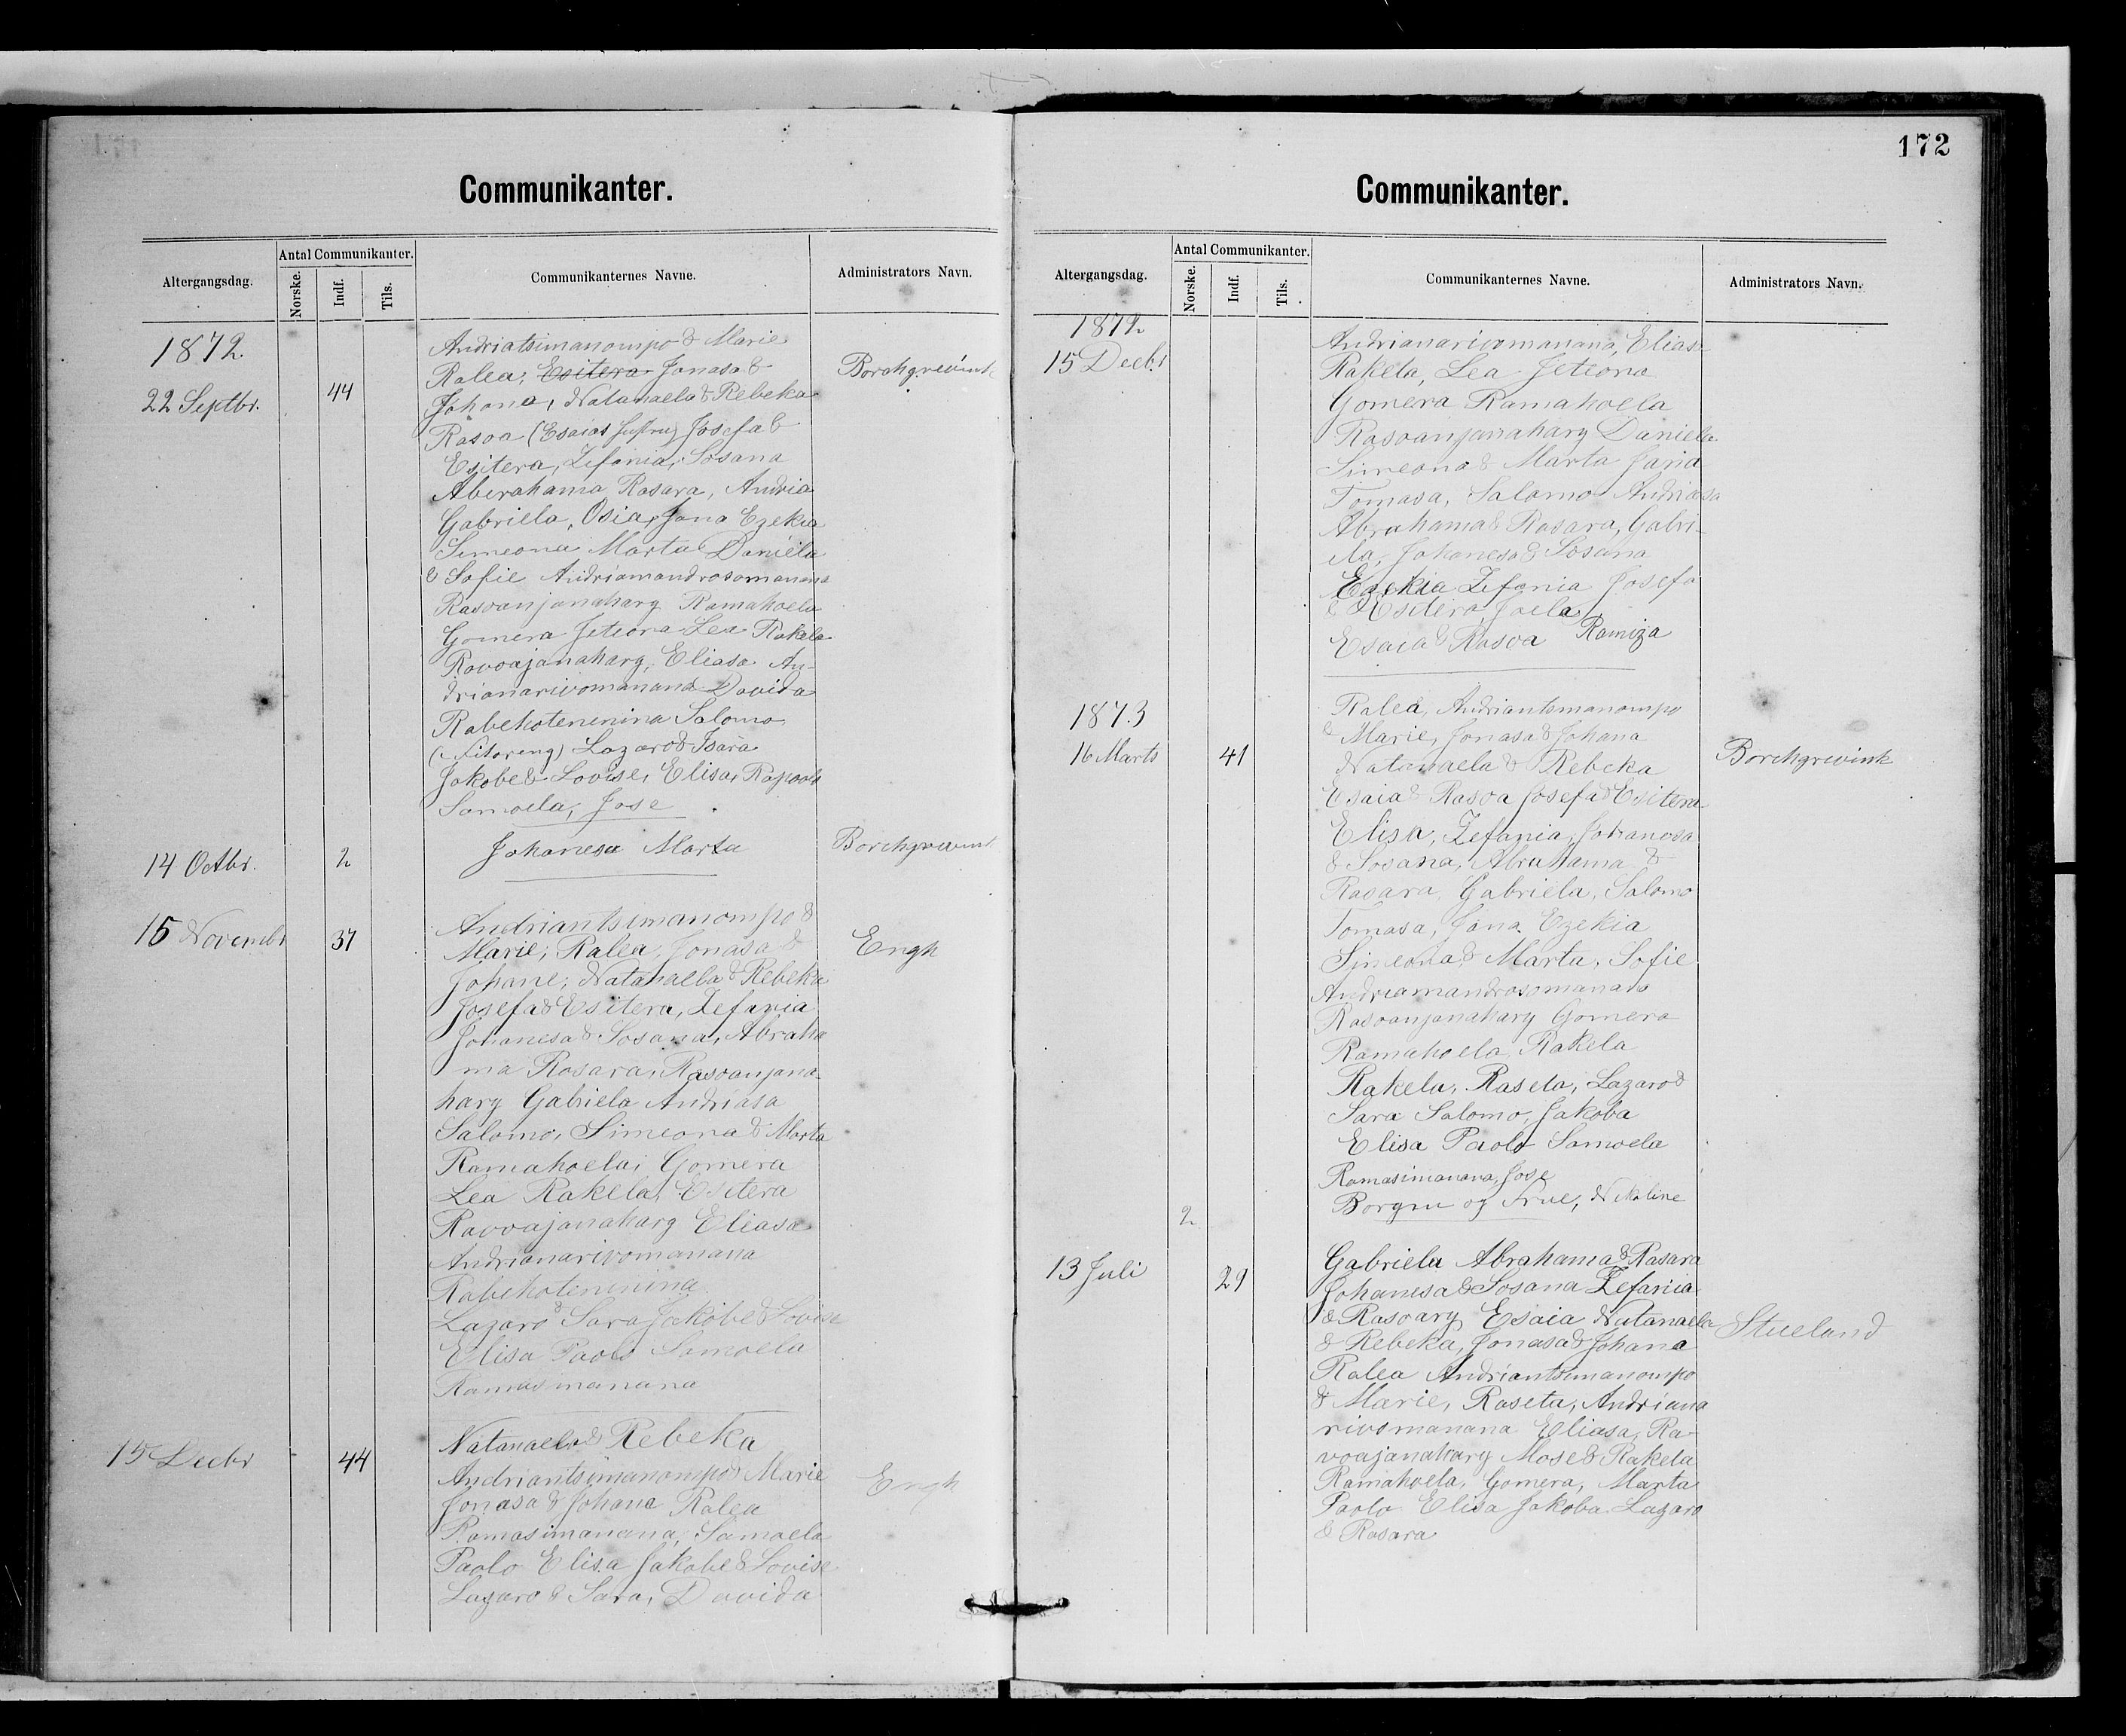 Communikanter.
Altergangsdag.
Antal Communikanter.
Norske.
Indf.
Tils.
Communikanternes Navne.
Administrators Navn.
1872.
22 Septbr.
44
Borchgrevink
Andriatsimanompo & Marie
Ralea, Esitera Jonasa &
Johana, Natanaela & Rebeka
Rasoa (Esaias Hustru) Josefa &
Esitera, Zefania, Sosana
Aberahama Rasara, Andria
Gabriela, Osia, Jona Ezekia
Simeona Marta Daniela
& Sofie Andriamandrosomanana
Rasoanjanahary Ramahoela
Gomera Jetiora Lea Rakela
Ravoajanahary, Eliasa An-
drianarivomanana Davida
Rabekotenenina Salomo
Lazaro & Isara
Jakobe & Lovise, Elisa, Rapaolo
Samoela, Jose
14 Octbr.
2
Johanesa Marta
Borchgrevink
15 Novembr
37
Engh
Andriantsimanompo &
Marie, Ralea, Jonasa &
Johane, Natanaela & Rebeka
Josefa & Esitera, Zefania
Johanesa & Sosana, Abraha
ma Rosara, Rasoanjana-
hary Gabriela Andriasa
Salomo, Simeona & Marta
Ramahoela, Gomera
Lea Rakela, Esitera
Ravoajanahary Eliasa
Andrianarivomanana
Rabekotenenina
Lazaro & Sara Jakobe & Lovise
Elisa Paolo Samoela
Ramasimanana
15 Decbr
44
Engh
Natanaela & Rebeka
Andriantsimanompo & Marie
Jonasa & Johana Ralea
Ramasimanana, Samoela
Paolo Elisa Jakobe & Lovise
Lazaro & Sara, Davida
172
Communikanter.
Altergangsdag.
Antal Communikanter.
Norske.
Indf.
Tils.
Communikanternes Navne.
Administrators Navn.
1872
15 Decbr
Andrianarivomanana, Eliasa
Rakela, Lea Jetiora
Gomera Ramahoela
Rasoanjanahary Daniela
Simeona & Marta Jana
Tomasa, Salomo Andriasa
Abrahama & Rasara, Gabri-
ela, Johanesa & Sosana
Ezekia Zefania Josefa
& Esitera, Joela,
Esaia & Rasoa Ramiza
1873
16 Marts
41
Borchgrevink
Ralea, Andriantsmanompo
& Marie, Jonasa & Johana
Natanaela & Rebeka
Esaia & Rasoa Josefa & Esitera
Elisa, Zefania, Johanesa
& Sosana, Abrahama &
Rasara, Gabriela, Salomo
Tomasa, Jona Ezekia
Simeona & Marta, Sofie
Andriamandrosomanana
Rasoanjanahary Gomera
Ramahoela, Rakela
Rakela, Raseta, Lazaro &
Sara Salomo, Jakoba
Elisa Paolo Samoela
Ramasimanana, Jose
2
Borgen og Frue, Nikoline
13 Juli
29
Stueland
Gabriela Abrahama & Rasara
Johanesa & Sosana Zefania
& Rasoary Esaia Natanaela
& Rebeka, Jonasa & Johana
Ralea Andriantsimanompo
& Marie, Raseta, Andriana
rivomanana Eliasa, Ra-
voajanahary Mose & Rakela
Ramahoela, Gomera, Marta
Paolo Elisa Jakoba Lazaro
& Rasara